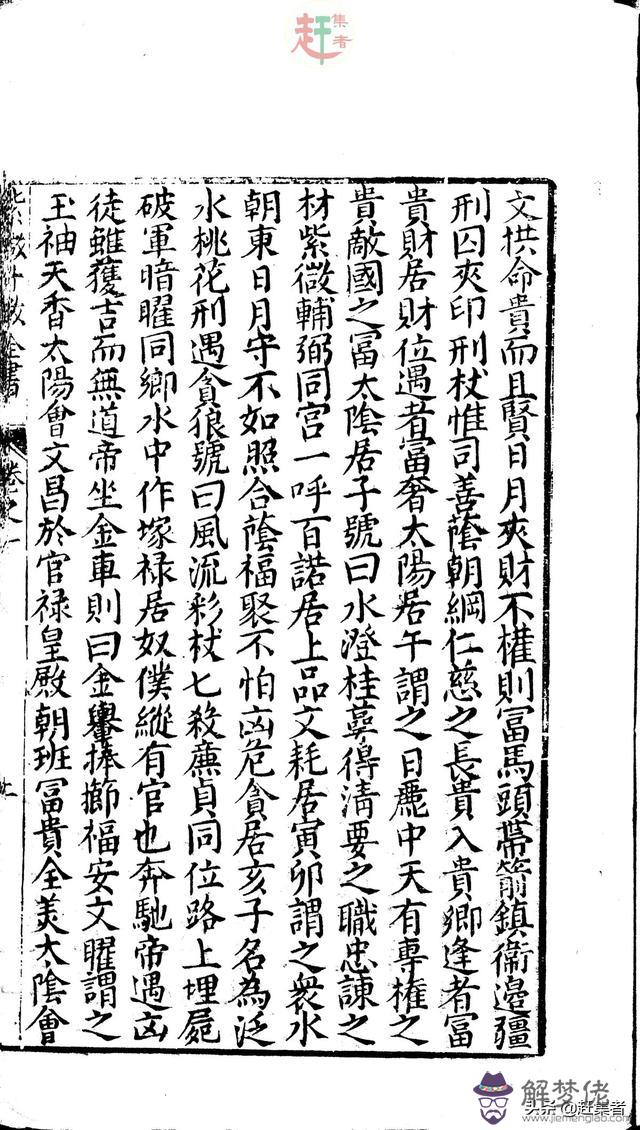 赶集者
文拱命貴而且賢日月夾財不權則冨馬頭帶箭鎮衛邉疆
刑囚夾印刑杖惟司善蔭朝綱仁慈之長貴入貴鄉逢者冨
貴財居財位遇者冨奢太陽居午謂之日麗中天有專權之
貴敵國之冨太陰居子號曰水澄桂萼得清要之職忠諫之
材紫微輔弼同宫一呼百諾居上品文耗居寅卯謂之衆水
朝東日月守不如照合蔭福聚不怕凶危貪居亥子名為泛
水桃花刑遇貪狼號曰風流彩杖七殺廉貞同位路上埋屍
破軍暗曜同鄉水中作塚禄居奴僕縱有官也奔馳帝遇凶
徒雖獲吉而無道帝坐金車則曰金轝捧擳福安文曜謂之
玉袖天香太陽會文昌於官禄皇殿朝班冨貴全美太陰會
全書
卷之一
解梦佬
www.jiemenglab.com
头条 @赶集者